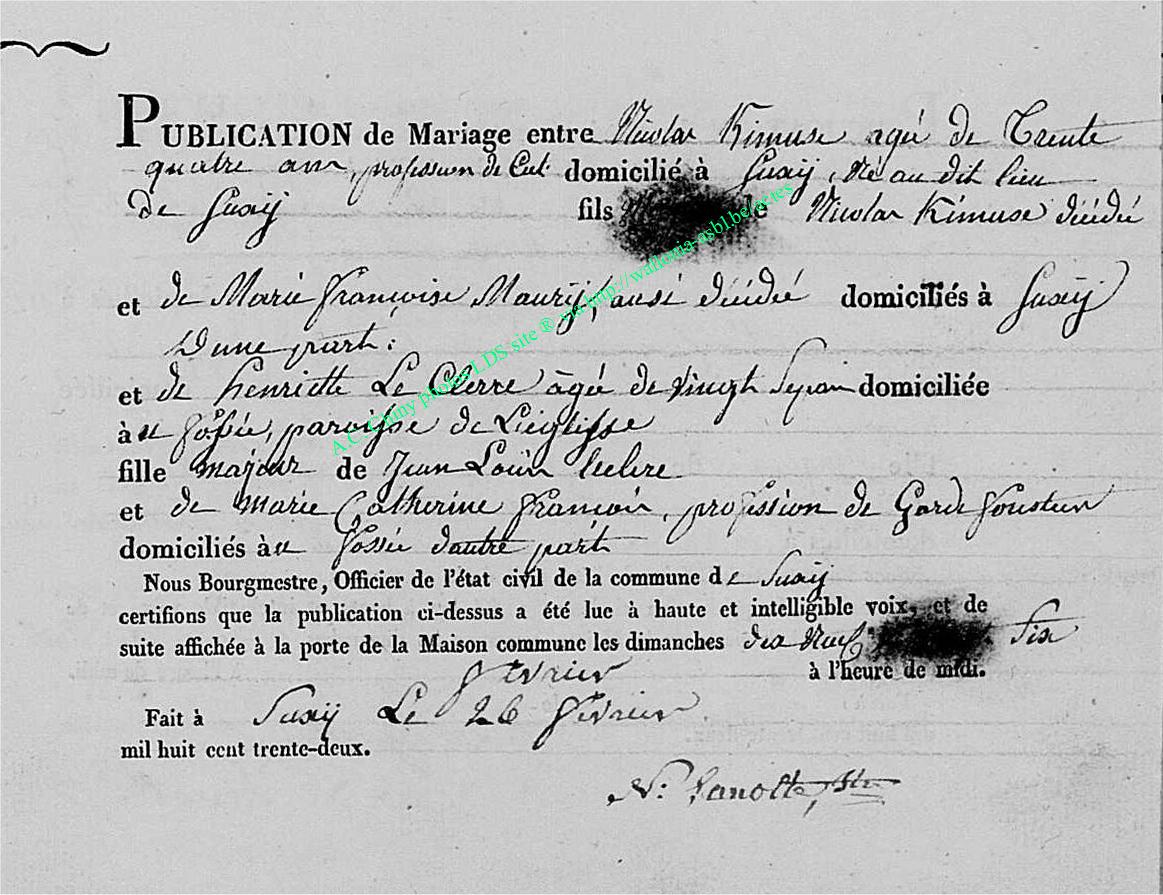 PUBLICATION de Mariage entre Nicolas Kimuse agé de Trente
quatre ans, profession de Cult. domicilié à Suxÿ, né au dit lieu
de Suxÿ fils de Nicolas Kimuse décédé
et de Marie françoise Maury, ausi décédé domiciliés à Suxÿ
D'une part;
et de henriette Le Clerre âgée de vingt Sept ans domiciliée
àu fossée, paroisse de Léeglisse
fille majeur de Jean Louis leclere
et de marie Catherine françois, profession de Garde
domiciliés àu fossée dautre part
Nous Bourgmestre, Officier de l'état civil de la commune de Suxÿ
certifions que la publication ci-dessus a été lue à haute et intelligible voix, et de
suite affichée à la porte de la Maison commune les dimanches dix Neuf Six
fevrier à l'heure de midi.
Fait à Suxÿ Le 26 fevrier
mil huit cent trente-deux.
N: Lanotte,
A.C. Chiny photos LDS site ® via http://wallonia-asbl.be/actes